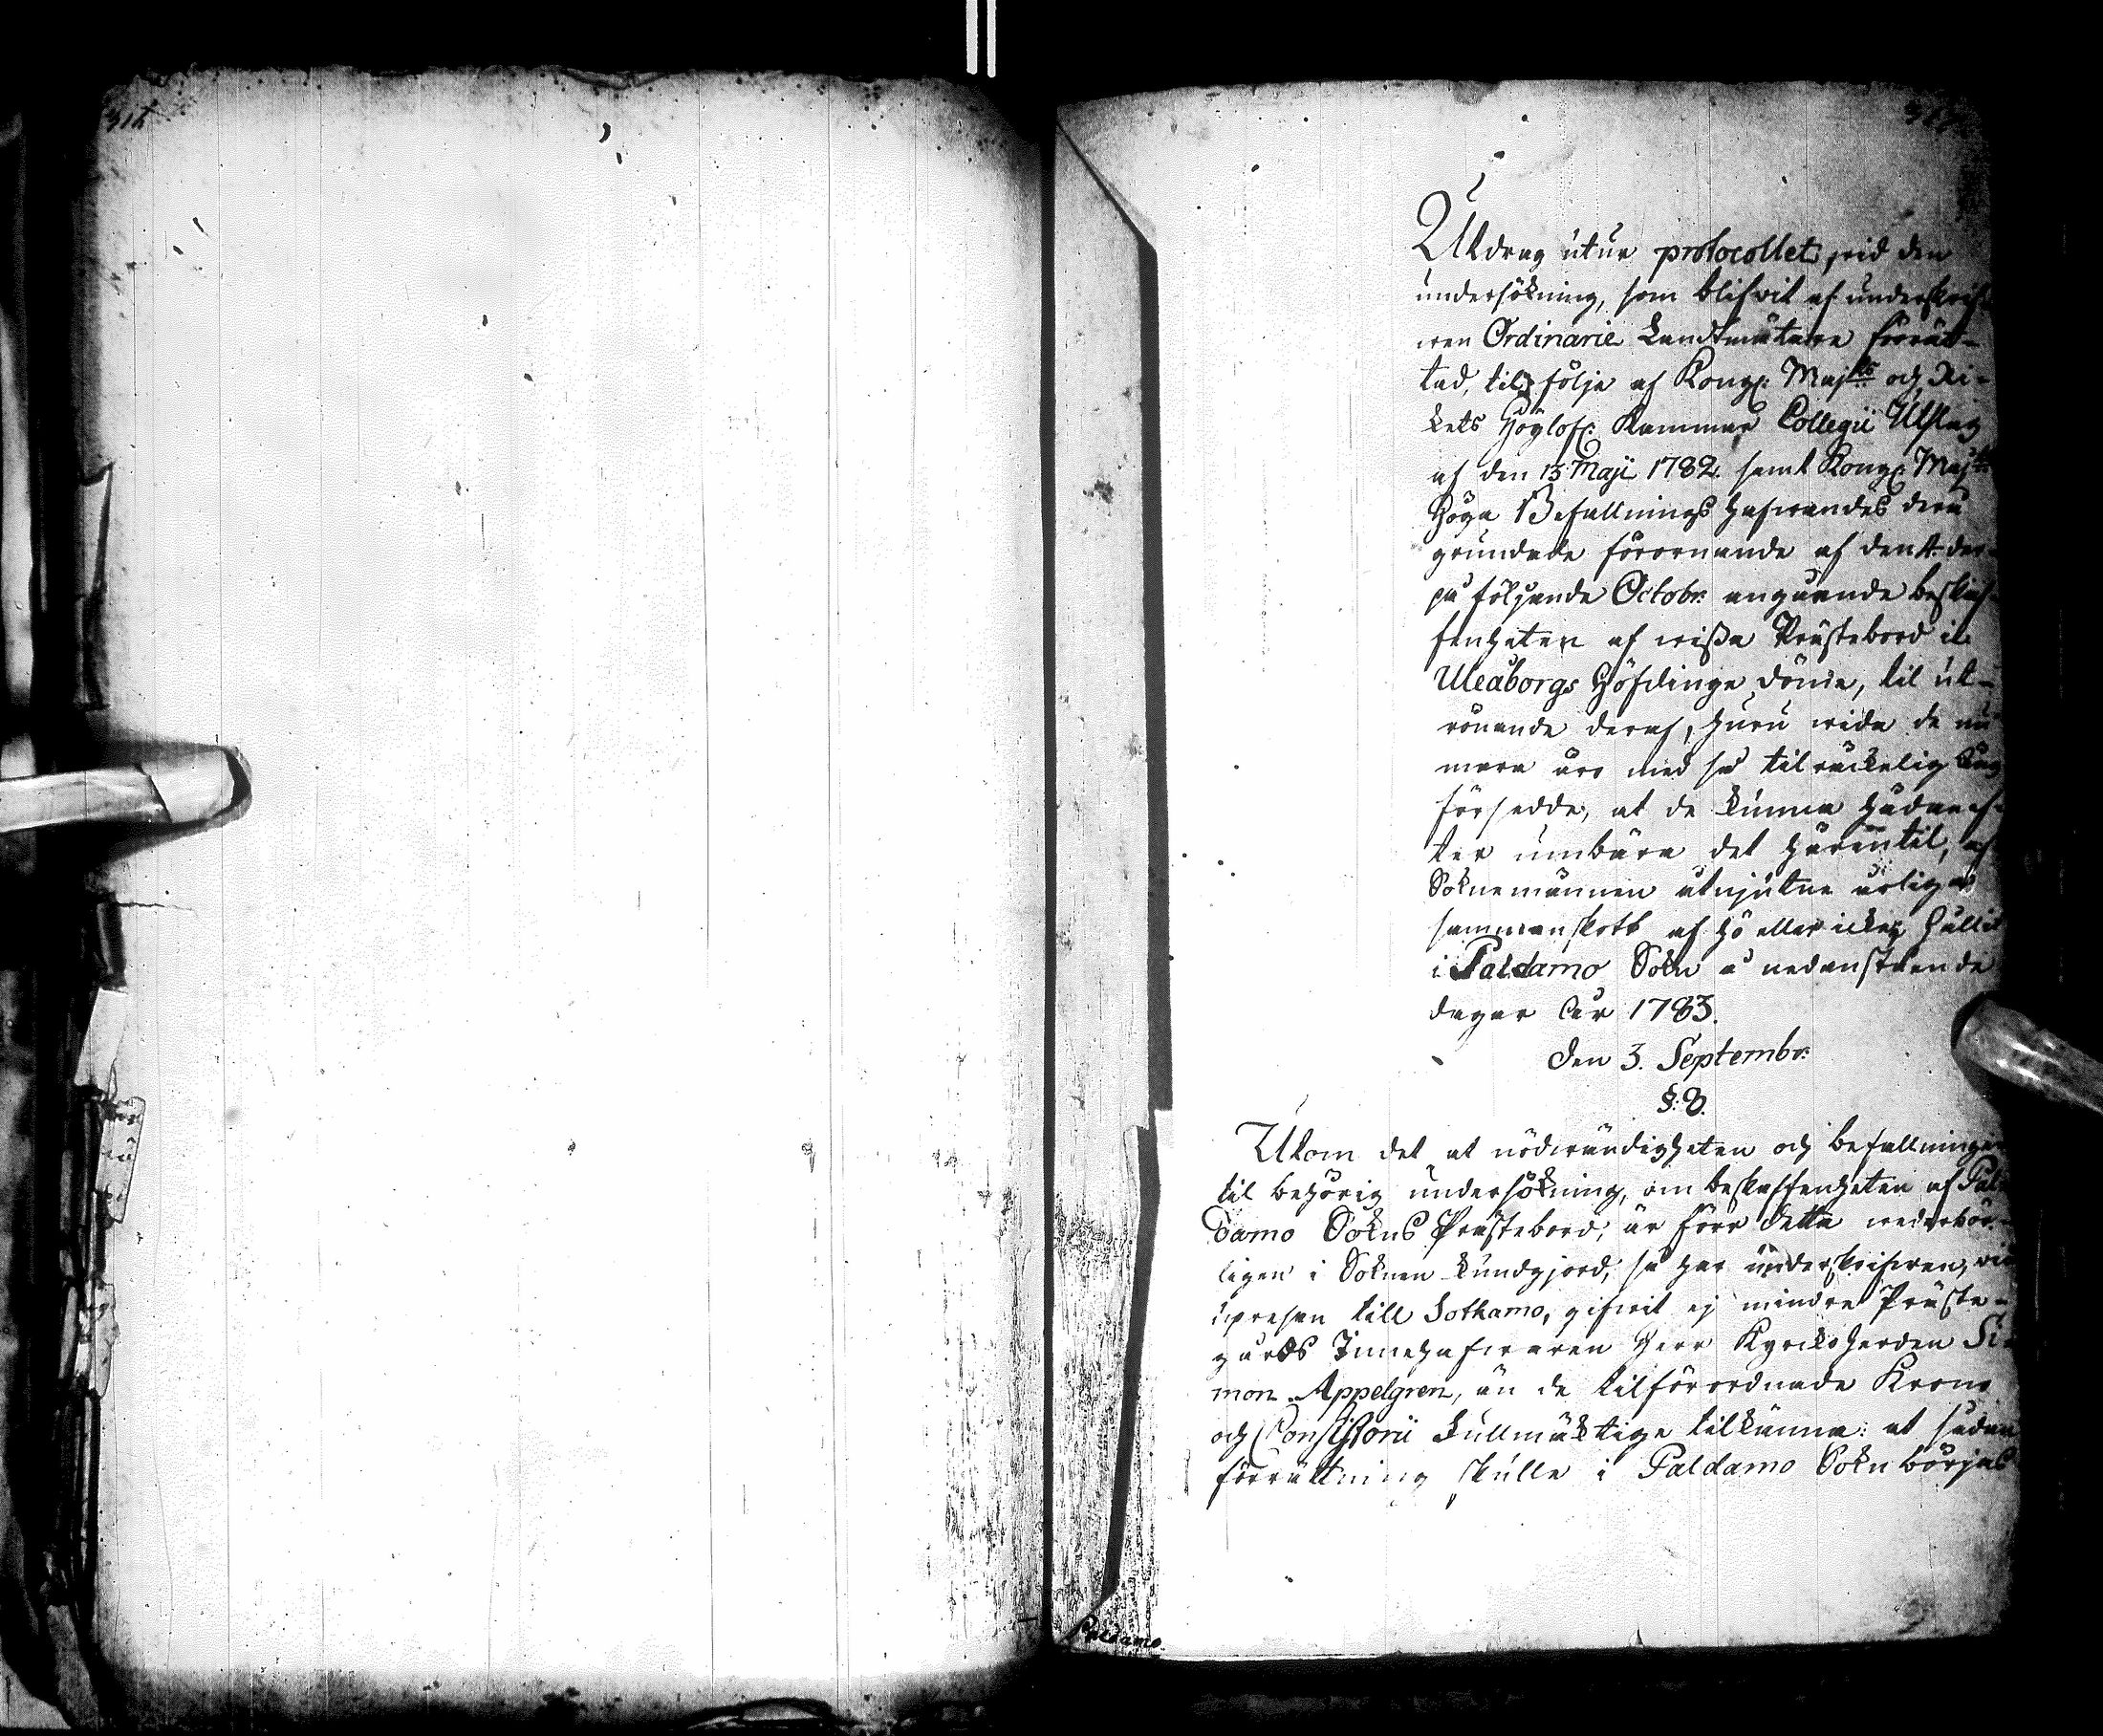 312
Utdrag utur protocollet, vid den
undersökning, som blifvit af underskrif-
ven Ordinarie Landtmätare förrät-
tad, til följe af Kongl: Maj:ts och Ri-
kets Höglofl: Kammar Collegii Utslag
af den 13 Maji 1782. samt Kongl: Maj:ts
Höga Befallnings Hafvandes derå
grundade förornande af den 4 der-
på följande Octobr: angående beskaf-
fenheten af vissa Prästebord i
Uleåborgs Höfdinge döme, til ut-
rönande deraf, huru vida de nu
mera äro med så tilräckelig äng
försedde, at de kunna hädanef-
ter umbära det härintil, af
Soknemännen åtnjutne årliga
sammanskott af hö eller icke, hållit
i Paldamo Sokn å nedanstående
dagar åhr 1783.
Den 3. Septembr:
§: 8.
Utom det at nödvändigheten och befallningen
til behörig undersökning, om beskaffenheten af Pal-
damo Sokns Prästebord, är förr detta vederbör-
ligen i Soknen kundgjord, så har underskrifven, vid
upresan till Sotkamo, gifvit ej mindre Präste-
gårds Innehafvaren Herr Kyrckoherden Si-
mon Appelgren, än de tilförordnade Krono
och Consistorii Fullmäktige tilkänna: at sådan
förrättning skulle i Paldamo Sokn börjas
Paldamo.